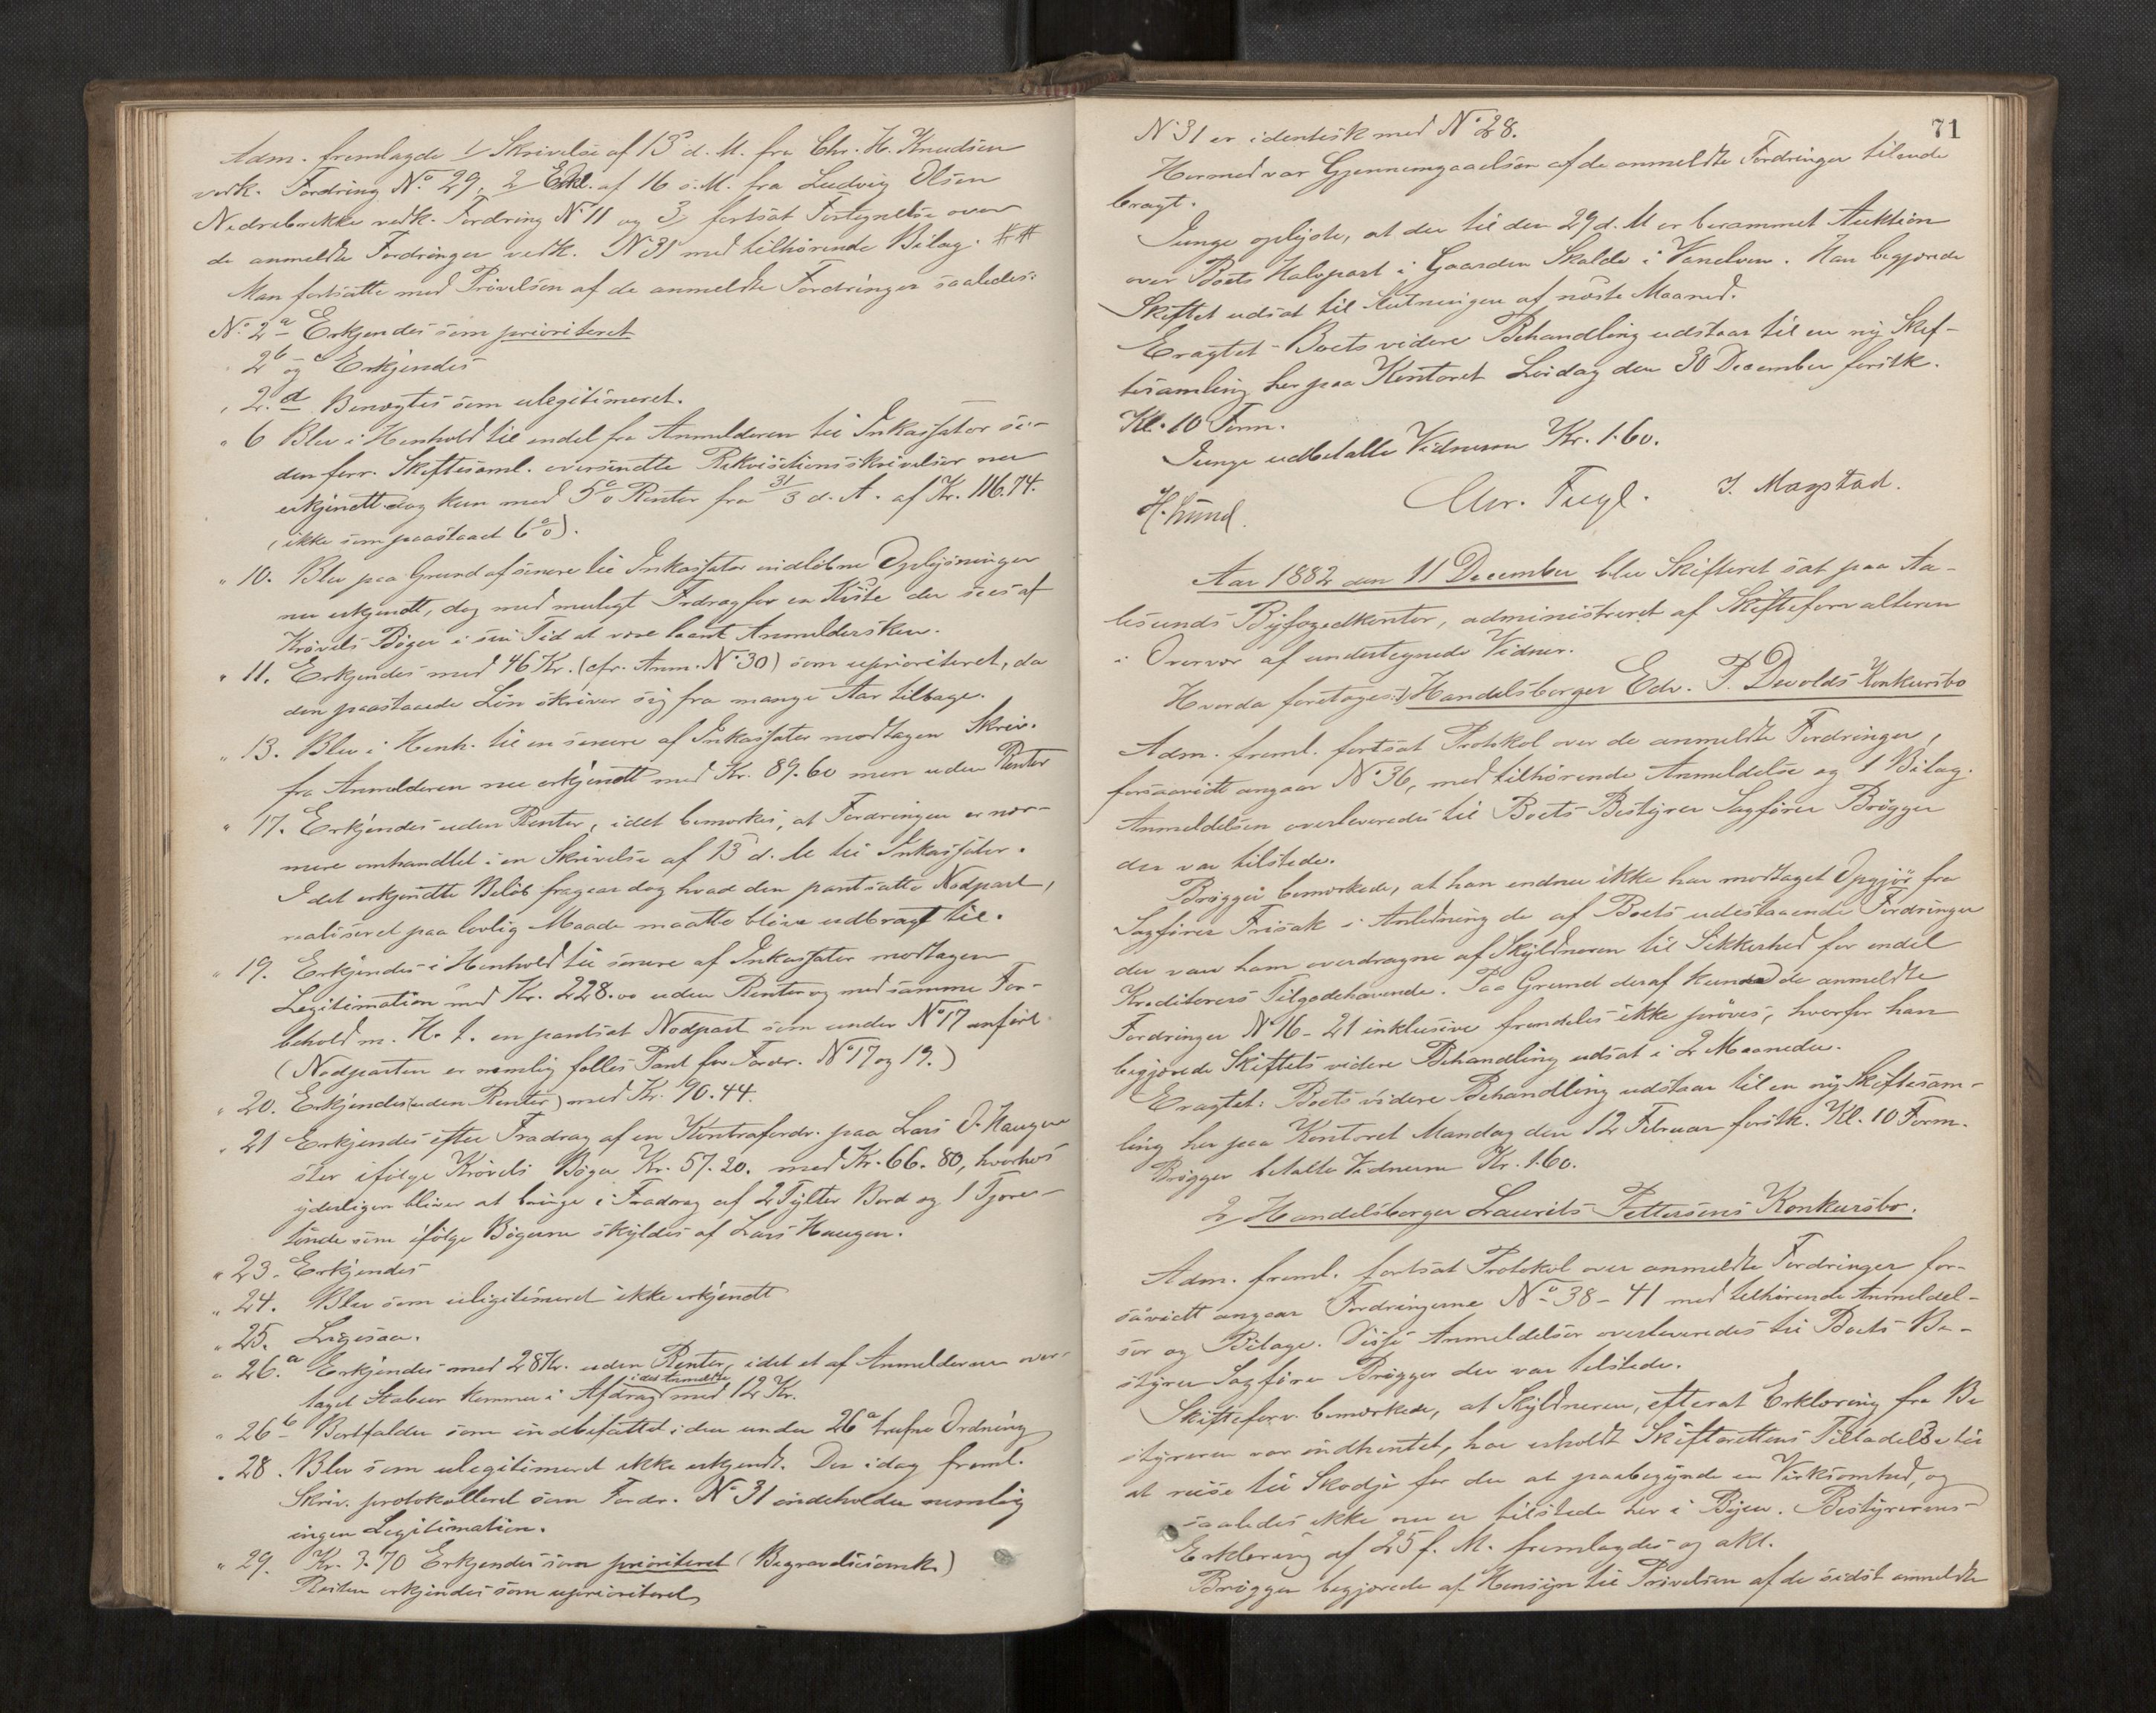 Adm. fremlagde 1/ Skrivelse af 13 d. M. fra Chr. H. Knudsen
vedk. Fordring No. 29, 2/ Erkl. af 16 s. M. fra Ludvig Olsen
Nedrebrekke vedk. Fordring No 11 og 3/ fortsat Fortegnelse over
de anmeldte Fordringer vedk. No 31 med tilhørende Bilag.
Man fortsatte med Prøvelsen af de anmeldte Fordringer saaledes:
No. 2a Erkjendes som prioriteret
2b og c Erkjendes
" 2.d Benægtes som ulegitimeret.
" 6 Blev i Henhold til endel fra Anmelderen til Inkassator si-
den forr. Skiftesaml. oversendte Rekvisitionsskrivelser nu
erkjendt dog kun med 5% Renter fra 31/3 d. A. af Kr. 116.74.
(ikke som paastaaet 6%).
" 10. Blev paa Grund af senere til Inkassator indløbne Oplysninger
nu erkjendt, dog med muligt Fradrag for en Kiste der sees af
Krøvels Bøger i sin Tid at være laant Anmeldersken.
" 11. Erkjendes med 46 Kr. (cfr. Anm. No 30) som uprioriteret, da
den paastaaede Løn skriver sig fra mange Aar tilbage.
" 13. Blev i Henh. til en senere af Inkassator modtagen Skriv.
fra Anmelderen nu erkjendt med Kr. 89.60 men uden Renter
" 17. Erkjendes uden Renter, idet bemærkes, at Fordringen er nær-
mere omhandlet i en Skrivelse af 13 d. M. til Inkassator.
I det erkjendte Beløb fragaar dog hvad den pantsatte Nodpart,
realiseret paa lovlig Maade maatte blive udbragt til.
" 19. Erkjendes i Henhold til senere af Inkassator modtagen
Legitimation med Kr. 228.00 uden Renter og med samme For-
behold m. H. t. en pantsat Nodpart som under No 17 anført
(Nodparten er nemlig fælles Pant for Fordr. No 17 og 19.)
" 20. Erkjendes (uden Renter) med Kr. 90.44.
" 21 Erkjendes efter Fradrag af en Kontrafordr. paa Lars O. Haugen
stor ifølge Krøvels Bøger Kr. 57.20. med Kr. 66.80, hvorhos
yderligere bliver at bringe i Fradrag af 2 Tylter Bord og 1 Tjære-
tønde som ifølge Bøgerne skyldes af Lars Haugen.
" 23. Erkjendes
" 24. Blev som ulegitimeret ikke erkjendt
" 25. Ligesaa.
" 26.a Erkjendes med 28 Kr. uden Renter, idet et af Anmelderen over-
taget Stabur kommer i Afdrag i det Anmeldte med 12 Kr.
" 26b Bortfalder som indbefattet i den under 26a trufne Ordning
" 28. Blev som ulegitimeret ikke erkjendt. Den idag freml.
Skriv. protokolleret som Fordr. No 31 indeholder nemlig
ingen Legitimation.
" 29. Kr. 3.70 Erkjendes som prioriteret (Begravelsesomk.)
Resten erkjendes som uprioriteret
71
No 31 er identisk med No 28.
Hermed var Gjennemgaaelsen af de anmeldte Fordringer tilende
bragt.
Junge oplyste, at der til den 29 d. M er berammet Auktion
over Boets Halvpart i Gaarden Skolde i Vanelven. Han begjærede
Skiftet udsat til Slutningen af næste Maaned.
Eragtet - Boets videre Behandling udstaar til en ny Skif-
tesamling her paa Kontoret Lørdag den 30 December førstk.
Kl. 10 Form.
Junge udbetalte Vidnerne Kr. 1.60.
H. Lund. Chr. Fugl. I. Magstad.
Aar 1882 den 11 December blev Skifteret sat paa Aa-
lesunds Byfogedkontor, administreret af Skifteforvalteren
i Overvær af undertegnede Vidner.
Hvorda foretoges: 1/ Handelsborger Edv. P. Devolds Konkursbo
Adm. freml. fortsat Protokol over de anmeldte Fordringer,
forsaavidt angaar No 36, med tilhørende Anmeldelse og 1 Bilag.
Anmeldelsen overleveredes til Boets Bestyrer Sagfører Brøgger
der var tilstede.
Brøgger bemærkede, at han endnu ikke har modtaget Opgjør fra
Sagfører Frisak i Anledning de af Boets udestaaende Fordringer
der var ham overdragne af Skyldneren til Sikkerhed for endel
Kreditorers Tilgodehavende. Paa Grund deraf kunde de anmeldte
Fordringer No 16-21 inklusive fremdeles ikke prøves, hvorfor han
begjærede Skiftets videre Behandling udsat i 2 Maaneder.
Eragtet: Boets videre Behandling udstaar til en ny Skiftesam-
ling her paa Kontoret Mandag den 12 Februar førstk. Kl. 10 Form.
Brøgger betalte Vidnerne Kr. 1.60.
2/ Handelsborger Laurits Pettersens Konkursbo.
Adm. freml. fortsat Protokol over anmeldte Fordringer for-
saavidt angaar Fordringerne No 38-41 med tilhørende Anmeldel-
ser og Bilage. Disse Anmeldelser overleveredes til Boets Be-
styrer Sagfører Brøgger der var tilstede.
Skifteforv. bemærkede, at Skyldneren, efterat Erklæring fra Be
styreren var indhentet, har erholdt Skifterettens Tilladelse til
at reise til Skodje for der at paabegynde en Virksomhed, og
saaledes ikke nu er tilstede her i Byen. Bestyrerens
Erklæring af 25 f. M. fremlagdes og akl.
Brøgger begjærede af Hensyn til Prøvelsen af de sidst anmeldte